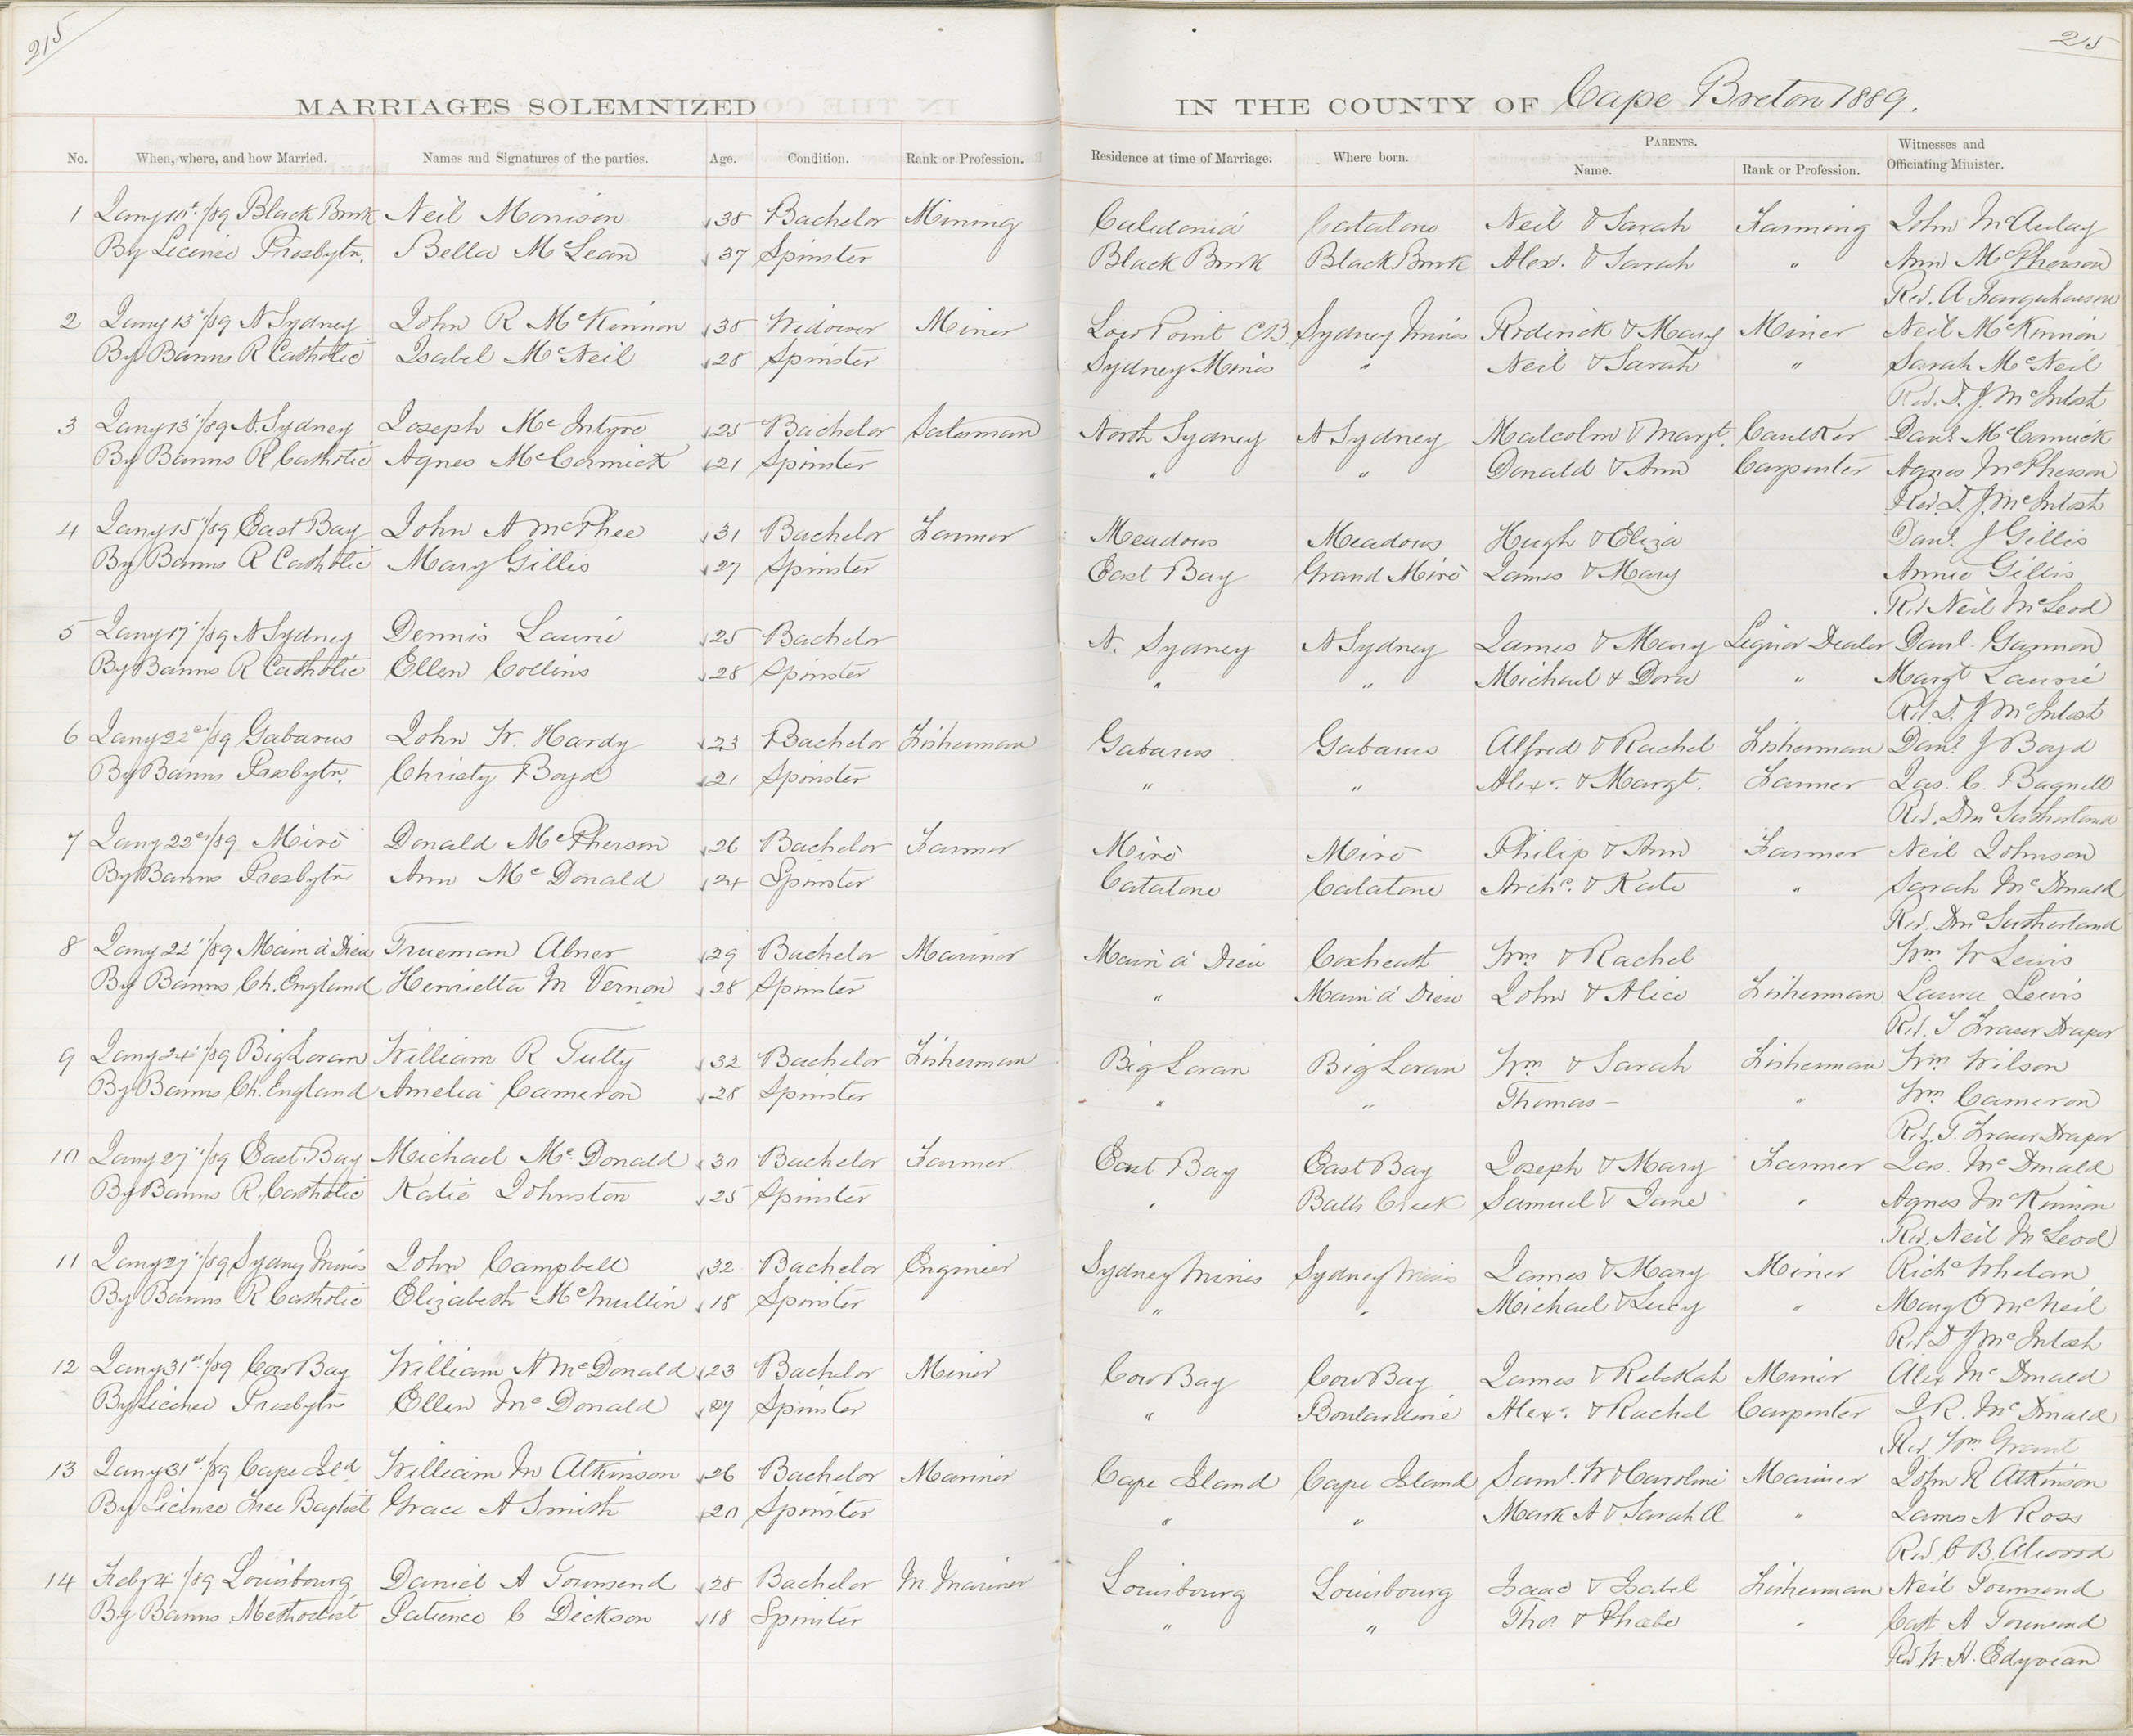 215
215
MARRIAGES SOLEMNIZED IN THE COUNTY OF Cape Breton 1889.
No. When, where, and how Married. Names and Signatures of the parties. Age. Condition. Rank or Profession. Residence at time of Marriage. Where born. PARENTS. Name. Rank or Profession. Witnesses and Officiating Minister.
1 Jany 10t. /89 Black Brook Neil Morrison 38 Bachelor Mining Caledonia Catalone Neil & Sarah Farming John McAulay
By License Presbytn. Bella McLean 37 Spinster Black Brook Black Brook Alex. & Sarah " Ann McPherson
Rev. A Farquharson
2 Jany 13 /89 N Sydney John R McKinnon 38 Widower Miner Low Point CB Sydney Mines Roderick & Mary Miner Neil McKinnon
By Banns R Catholic Isabel McNeil 28 Spinster Sydney Mines " Neil & Sarah " Sarah McNeil
Rev. D. J. McIntosh
3 Jany 13 /89 N. Sydney Joseph McIntyre 25 Bachelor Salesman North Sydney N Sydney Malcolm & Margt. Caulker Danl McCormick
By Banns R Catholic Agnes McCormick 21 Spinster " " Donald & Ann Carpenter Agnes McPherson
Rev. D. J. McIntosh
4 Jany 15 /89 East Bay John A McPhee 31 Bachelor Farmer Meadows Meadows Hugh & Eliza Danl. J Gillis
By Banns R Catholic Mary Gillis 27 Spinster East Bay Grand Miré James & Mary Annie Gillis
Rev Neil McLeod
5 Jany 17 /89 N Sydney Dennis Laurie 25 Bachelor N. Sydney N Sydney James & Mary Liquor Dealer Danl. Gannon
By Banns R Catholic Ellen Collins 28 Spinster " " Michael & Dora " Margt Laurie
Rev. D. J McIntosh
6 Jany 22 /89 Gabarus John W. Hardy 23 Bachelor Fisherman Gabarus Gabarus Alfred & Rachel Fisherman Danl J Boyd
By Banns Presbytn. Christy Boyd 21 Spinster " " Alexr. & Margt. Farmer Jas. C. Bagnell
Rev. D McSutherland
7 Jany 22 /89 Miré Donald McPherson 26 Bachelor Farmer Miré Miré Philip & Ann Farmer Neil Johnson
By Banns Presbytn Ann McDonald 24 Spinster Catalone Catalone Archd. & Kate " Sarah McDonald
Rev. D McSutherland
8 Jany 22 /89 Main á Dieu Trueman Abner 29 Bachelor Mariner Main á Dieu Coxheath Wm & Rachel Wm W Lewis
By Banns Ch. England Henrietta M Vernon 28 Spinster " Main á Dieu John & Alice Fisherman Laura Lewis
Rev. T Fraser Draper
9 Jany 24 /89 Big Loran William R Tutty 32 Bachelor Fisherman Big Loran Big Loran Wm & Sarah Fisherman Wm Wilson
By Banns Ch. England Amelia Cameron 28 Spinster " " Thomas — " Wm Cameron
Rev. T. Fraser Draper
10 Jany 27 /89 East Bay Michael McDonald 30 Bachelor Farmer East Bay East Bay Joseph & Mary Farmer Jas. McDonald
By Banns R. Catholic Katie Johnston 25 Spinster " Balls Creek Samuel & Jane " Agnes McKinnon
Rev. Neil McLeod
11 Jany 27 /89 Sydney Mines John Campbell 32 Bachelor Engineer Sydney Mines Sydney Mines James & Mary Miner Richd Whelan
By Banns R Catholic Elizabeth McMullin 18 Spinster " " Michael & Lucy " Mary O McNeil
Rev D J McIntosh
12 Jany 31st /89 Cow Bay William A McDonald 23 Bachelor Miner Cow Bay Cow Bay James & Rebekah Miner Alex McDonald
By License Presbytn Ellen McDonald Spinster " Boulardrie Alexr. & Rachel Carpenter J. R. McDonald
Rev. Wm Grant
13 Jany 31st /89 Cape Isld William M Atkinson 26 Bachelor Mariner Cape Island Cape Island Saml. W & Caroline Mariner John R Atkinson
By License Free Baptist Grace A Smith 20 Spinster " " Mark A & Sarah A " James N Ross
Rev. C B Atwood
14 Feby 4 /89 Louisbourg Daniel A Townsend 28 Bachelor M. Mariner Louisbourg Louisbourg Isaac & Isabel Fisherman Neil Townsend
By Banns Methodist Patience C Dickson 18 Spinster " " Thos & Phoebe " Capt A Townsend
Rev W. A. Edyvean